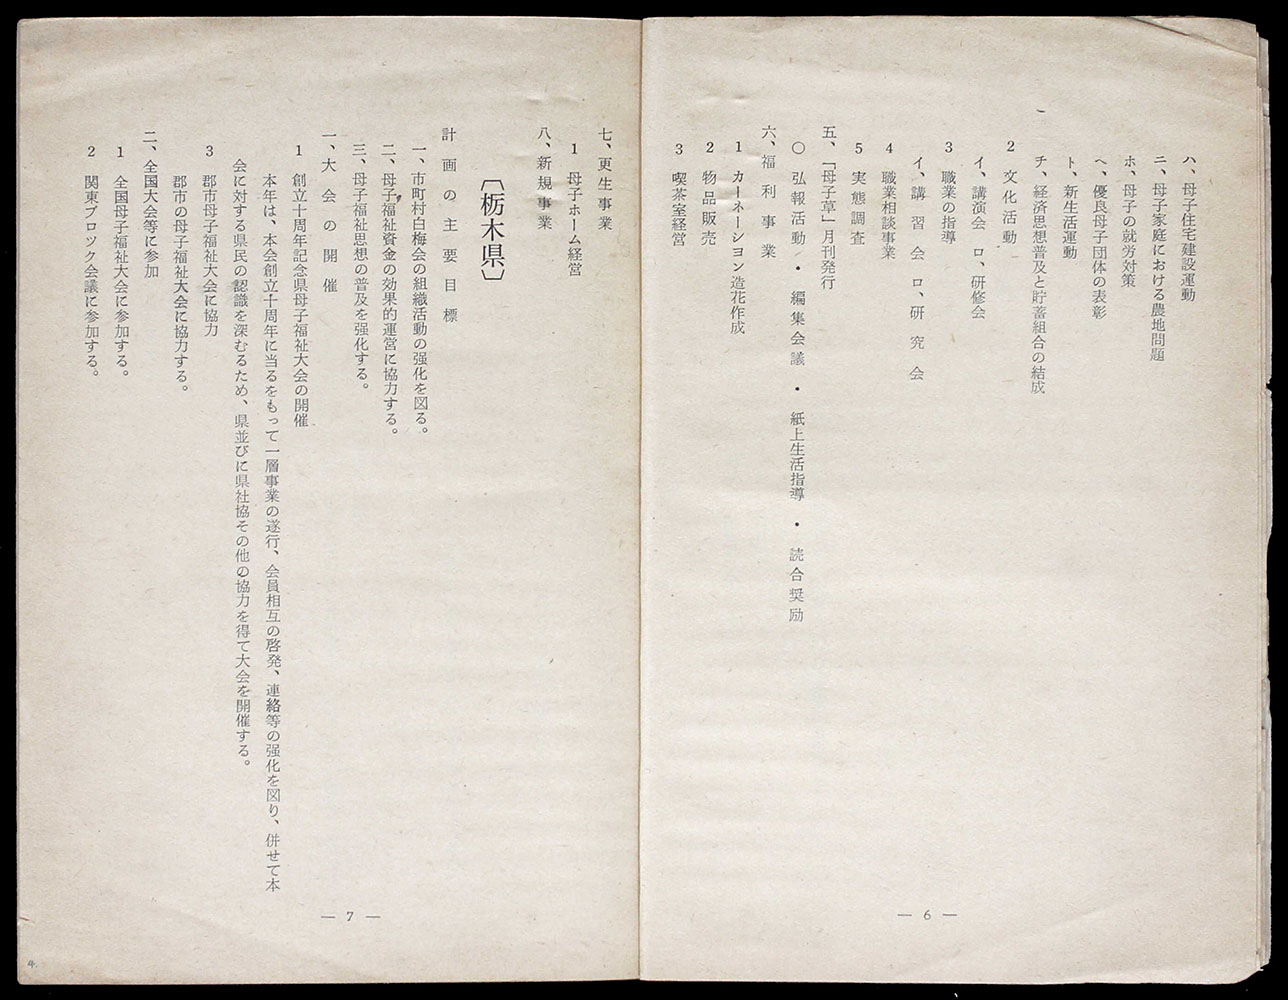 ハ、母子住宅建設運動
ニ、母子家庭における農地問題
ホ、母子の就労対策
ヘ、優良母子団体の表彰
ト、新生活運動
チ、経済思想普及と貯蓄組合の結成
2 文化活動
イ、講演会 ロ、研修会
3 職業の指導
イ、講習会 ロ、研究会
4 職業相談事業
5 実態調査
五、「母子草」月刊発行
〇 弘報活動・編集会議・紙上生活指導・読合奨励
六、福利事業
1 カーネーシヨン造花作成
2 物品販売
3 喫茶室経営
— 6 —
七、更生事業
1 母子ホーム経営
八、新規事業
〔栃木県〕
計画の主要目標
一、市町村白梅会の組織活動の強化を図る。
二、母子福祉資金の効果的運営に協力する。
三、母子福祉思想の普及を強化する。
一、大会の開催
1 創立十周年記念県母子福祉大会の開催
本年は、本会創立十周年に当るをもって一層事業の遂行、会員相互の啓発、連絡等の強化を図り、併せて本
会に対する県民の認識を深むるため、県並びに県社協その他の協力を得て大会を開催する。
3 郡市母子福祉大会に協力
郡市の母子福祉大会に協力する。
二、全国大会等に参加
1 全国母子福祉大会に参加する。
2 関東ブロツク会議に参加する。
— 7 —
4